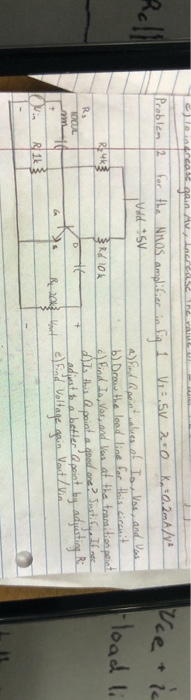 Rc||
Vce + ic
load li
c) Increase gain Av, increase the value of
Problem 2 for the NMOS amplifier in fig 1 Vt = .5V λ=0 Kn=0.2mA/V²
Vdd = 5V
R2 4k
Rd 10k
R3
100k
Vin
R1 1k
G
D
S
Vout
a) Find Q point values of ID, VGS, and VDS
b) Draw the load line for this circuit
c) Find ID, VGS, and VDS at the transition point
d) Is this Q point a good one? Justify. If not
adjust to a better Q point by adjusting R2
e) Find Voltage gain Vout/Vin